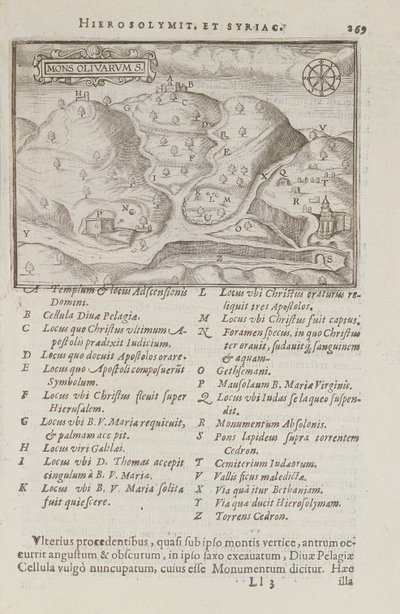 HIEROSOLYMIT. ET SYRIAC. 269
MONS OLIVARVM S.
A Templum & locus Adscensionis
Domini.
B Cellula Diuæ Pelagiæ.
C Locus quo Christus vltimum A-
postolis prædixit Iudicium.
D Locus quo docuit Apostolos orare.
E Locus quo Apostoli composuerūt
Symbolum.
F Locus vbi Christus fleuit super
Hierusalem.
G Locus vbi B. V. Maria requieuit,
& palmam accepit.
H Locus viri Galilæi.
I Locus vbi D. Thomas accepit
cingulum à B. V. Maria.
K Locus vbi B. V. Maria solita
fuit quiescere.
L Locus vbi Christus oraturus re-
liquit tres Apostolos.
M Locus vbi Christus fuit captus.
N Foramen specus, in quo Christus
ter orauit, sudauitq́; sanguinem
& aquam.
O Gethsemani.
P Mausolæum B. Mariæ Virginis.
Q Locus vbi Iudas se laqueo suspen-
dit.
R Monumentum Absolonis.
S Pons lapideus supra torrentem
Cedron.
T Cemiterium Iudæorum.
V Vallis ficus maledictæ.
X Via quà itur Bethaniam.
Y Via quæ ducit Hierosolymam.
Z Torrens Cedron.
Vlterius procedentibus, quasi sub ipso montis vertice, antrum oc-
currit angustum & obscurum, in ipso saxo excauatum, Diuæ Pelagiæ
Cellula vulgò nuncupatum, cuius esse Monumentum dicitur. Hæc
Ll 3 illa